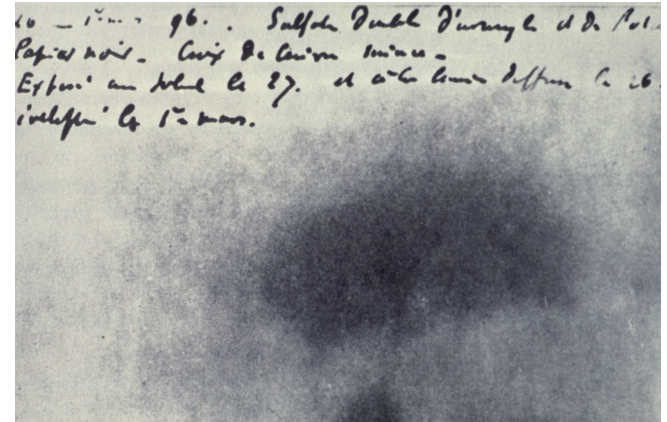 96. . Sulfate double d'uranyle et de Pot
Papier noir. Croix de Cuivre mince.
Exposé au soleil le 27. et à la lumière diffuse le 26.
développé le 1er mars.